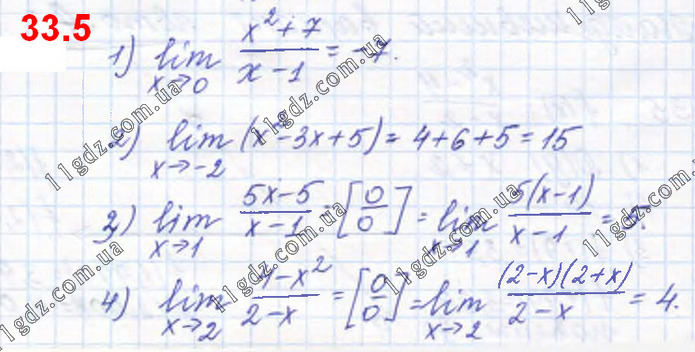 33.5
1) lim x→0 (x²+7)/(x-1) = -7.
2) lim x→-2 (x²-3x+5) = 4+6+5 = 15
3) lim x→1 (5x-5)/(x-1) = [0/0] = lim x→1 5(x-1)/(x-1) = 5.
4) lim x→2 (4-x²)/(2-x) = [0/0] = lim x→2 (2-x)(2+x)/(2-x) = 4.
11gdz.com.ua
11gdz.com.ua
11gdz.com.ua
11gdz.com.ua
11gdz.com.ua